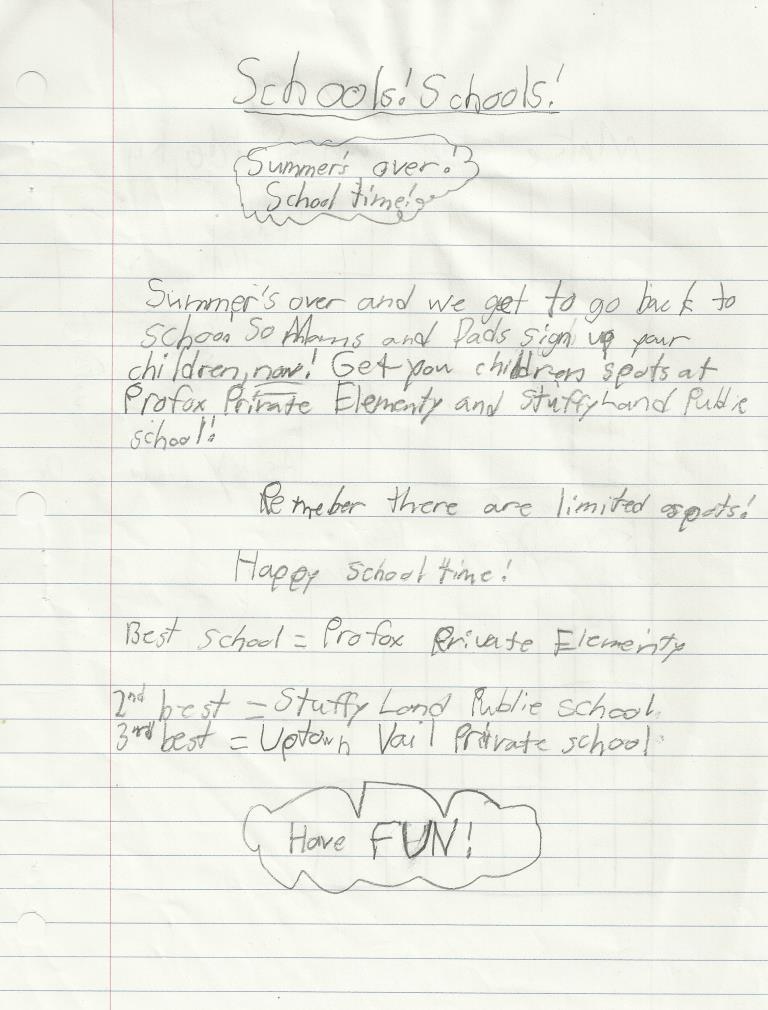 Schools! Schools!
Summer's over!
School time!
Summer's over and we get to go back to
school. So Moms and Dads sign up your
children, now! Get you children spots at
Profox Private Elementy and Stuffy Land Public
school!
Remeber there are limited spots!
Happy school time!
Best school = Profox Private Elementy
2nd best = Stuffy Land Public school.
3rd best = Uptown Vail Private school
Have FUN!